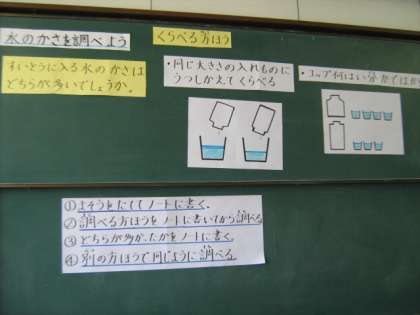 水のかさを調べよう
すいとうに入る水のかさは
どちらが多いでしょうか。
くらべる方ほう
・同じ大きさの入れものに
うつしかえてくらべる
・コップ何はい分かでくらべる
①よそうをたててノートに書く。
②調べる方ほうをノートに書いてから調べる
③どちらが多かったかをノートに書く。
④別の方ほうで同じように調べる。